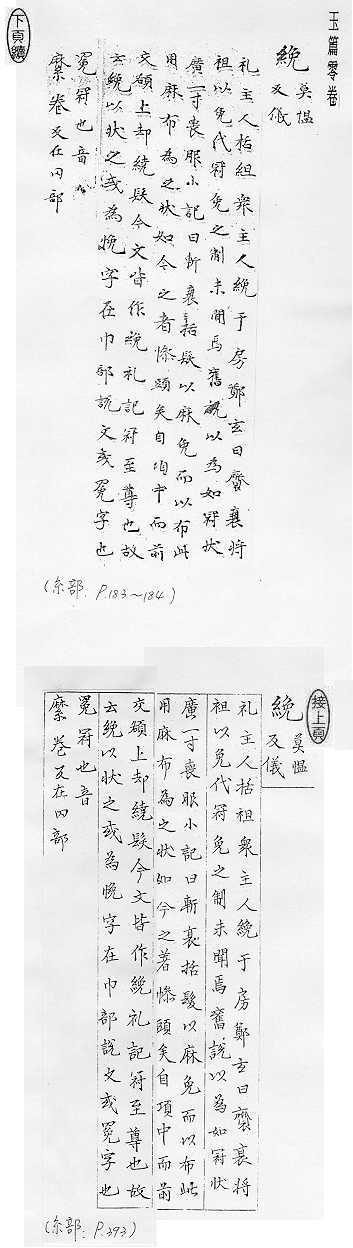 玉篇零卷
下頁續
絻 莫愠
反儀
礼主人括祖衆主人絻于房鄭玄曰齊衰將
祖以免代冠免之制未聞焉舊説以為如冠狀
廣一寸喪服小記曰斬衰括髮以麻免而以布此
用麻布為之状如今之著幓頭矣自項中而前
交額上却繞髮今文皆作絻礼記冠至尊也故
云絻以状之或為㡈字在巾部説文或冕字也
冕冠也音
縻卷反在冂部
(糸部: P.183~184.)
接上頁
絻 莫愠
反儀
礼主人括祖衆主人絻于房鄭玄曰齊衰將
祖以免代冠免之制未聞焉舊説以為如冠狀
廣一寸喪服小記曰斬衰括髮以麻免而以布此
用麻布為之状如今之著幓頭矣自項中而前
交額上却繞髮今文皆作絻礼記冠至尊也故
云絻以状之或為㡈字在巾部説文或冕字也
冕冠也音
縻卷反在冂部
(糸部: P.393)